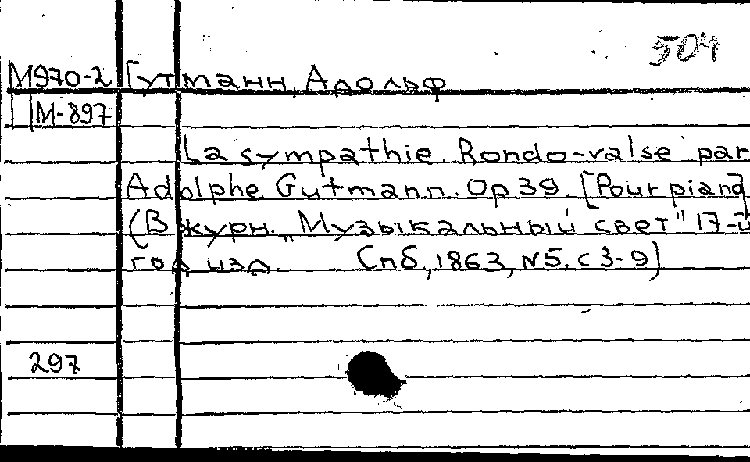 504
М970-2 Гутманн, Адольф
М-897
La sympathie. Rondo-valse par
Adolphe Gutmann. Op 39. [Pour piano]
(В журн. „Музыкальный свет" 17-й
год изд. Спб, 1863, N5. с 3-9)
297